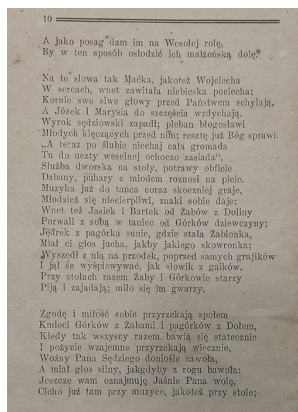 10
A jako posag dam im na Wesołej rolę,
By w ten sposób osłodzić ich małżeńską dolę.
Na te słowa tak Maćka, jakoteż Wojciecha
W sercach, wnet zawitała niebieska pociecha;
Kornie swe siwe głowy przed Państwem schylają,
A Józek i Marysia do szczęścia wzdychają.
Wyrok sędziowski zapadł; pleban błogosławi
Młodych klęczących przed nim; resztę już Bóg sprawi.
„A teraz po ślubie niechaj cała gromada
Tu do uczty weselnej ochoczo zasiada“.
Służba dworska na stoły, potrawy obficie
Dzbany, puhary z miodem roznosi na picie.
Muzyka już do tańca coraz skoczniej graje,
Młodzież się niecierpliwi, znaki sobie daje:
Wnet też Jasiek i Bartek od Żabów z Doliny
Porwali z sobą w taniec od Górków dziewczyny;
Jędrek z pagórka sunie, gdzie stała Żabionka,
Miał ci głos jucha, jakby jakiego skowronka;
Wyszedł z nią na przodek, poprzed samych grajików
I jął śe wyśpiewywać, jak słowik z gaików.
Przy stołach razem Żaby i Górkowie starzy
Piją i zajadają; miło się im gwarzy.
Zgodę i miłość sobie przyrzekają społem
Kmieci Górków z Żabami i pagórków z Dołem,
Kiedy tak wszyscy razem bawią się statecznie
I pożycie wzajemne przyrzekają wiecznie,
Woźny Pana Sędziego doniośle zawoła,
A miał głos silny, jakgdyby z rogu bawoła:
Jeszcze wam oznajmuję Jaśnie Pana wolę,
Cicho już tam przy muzyce, jakoteż przy stole;